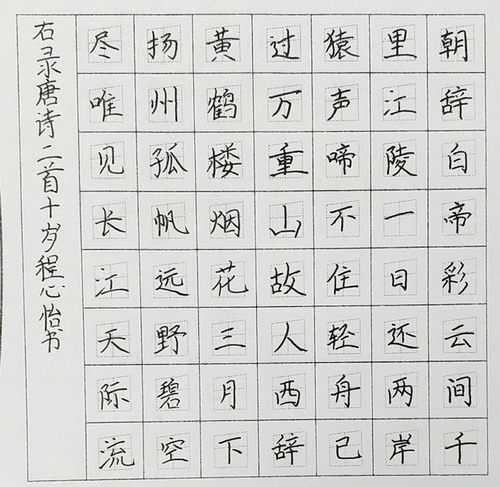 朝辞白帝彩云间千
里江陵一日还两岸
猿声啼不住轻舟已
过万重山故人西辞
黄鹤楼烟花三月下
扬州孤帆远野碧空
尽唯见长江天际流
右录唐诗二首十岁程心怡书